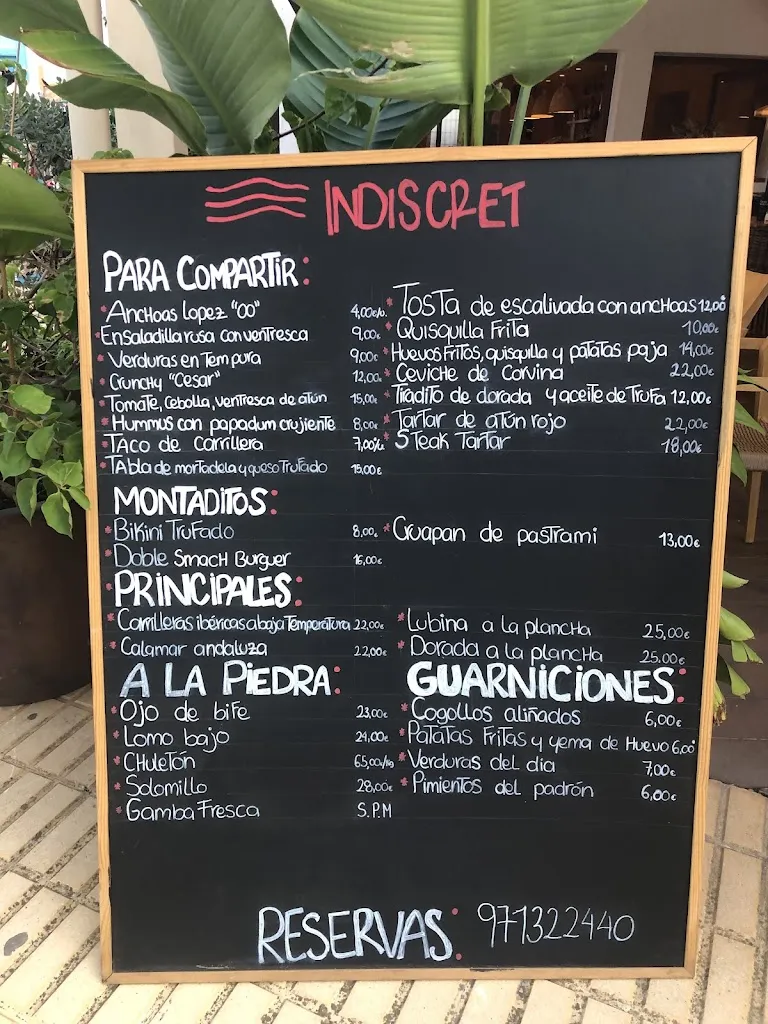 INDISCRET
PARA COMPARTIR:
* Anchoas Lopez "00" 4,00€/u.
* Ensaladilla rusa con ventresca 9,00€
* Verduras en Tempura 9,00€
* Crunchy "Cesar" 12,00€
* Tomate, cebolla, ventresca de atún 15,00€
* Hummus con papadum crujiente 8,00€
* Taco de carrillera 7,00€/u
* Tabla de mortadela y queso Trufado 15,00€
* Tosta de escalivada con anchoas 12,00
* Quisquilla Frita 10,00€
* Huevos Fritos, quisquilla y patatas paja 14,00€
* Ceviche de Corvina 22,00€
* Tiradito de dorada y aceite de Trufa 12,00€
* Tartar de atún rojo 22,00€
* Steak Tartar 18,00€
MONTADITOS:
* Bikini Trufado 8,00€
* Doble Smach Burguer 16,00€
* Guapan de pastrami 13,00€
PRINCIPALES:
* Carrilleras ibéricas a baja Temperatura 22,00€
* Calamar andaluza 22,00€
* Lubina a la plancha 25,00€
* Dorada a la plancha 25,00€
A LA PIEDRA:
* Ojo de bife 23,00€
* Lomo bajo 24,00€
* Chuletón 65,00/kg
* Solomillo 28,00€
* Gamba Fresca S.P.M
GUARNICIONES:
* Cogollos aliñados 6,00€
* Patatas Fritas y yema de Huevo 6,00
* Verduras del dia 7,00€
* Pimientos del padrón 6,00€
RESERVAS: 971322440